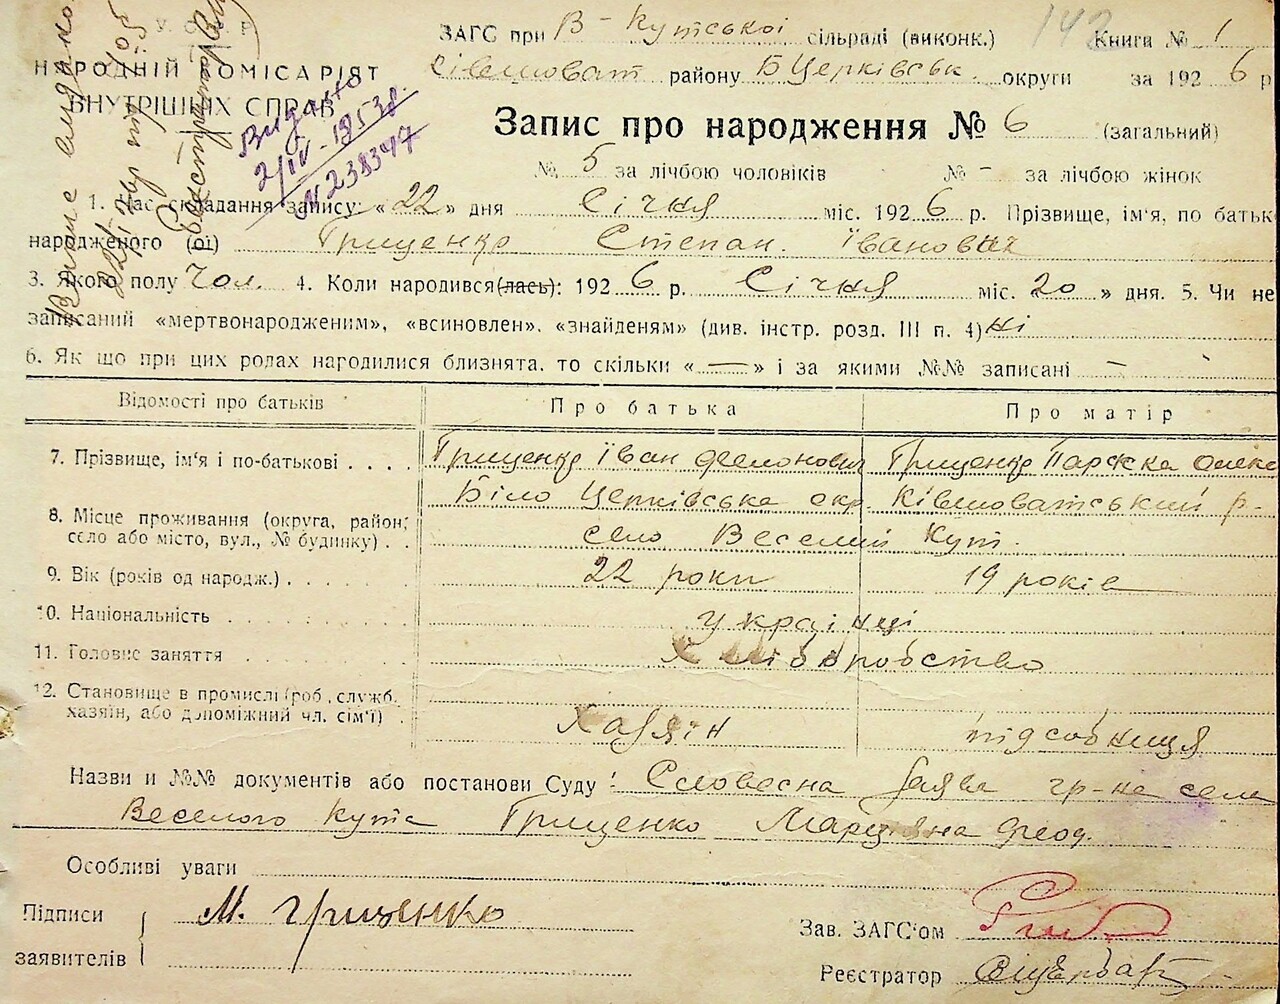 У. С. Р. Р.
НАРОДНІЙ КОМІСАРІЯТ
ВНУТРІШНІХ СПРАВ
ЗАГС при В-Кутської сільраді (виконк.) 142 Книга № 1
Ківшоват району БЦерківськ. округи за 1926 р
Запис про народження № 6 (загальний)
№ 5 за лічбою чоловіків № - за лічбою жінок
Видано
2/IV-1953р.
N 238347
1. Час складання запису: «22» дня Січня міс. 1926 р. Прізвище, ім'я, по батьк
народженого (ої) Гриценко Степан. Івонович
3. Якого полу чол. 4. Коли народився(лась): 1926 р. Січня міс. «20» дня. 5. Чи не
записаний «мертвонародженим», «всиновлен», «знайденям» (див. інстр. розд. III п. 4) ні
6. Як що при цих родах нагодилися близнята, то скільки «—» і за якими №№ записані —
Відомості про батьків Про батька Про матір
7. Прізвище, ім'я і по-батькові . . . . Гриценко Іван Гриценко Параска Олекс
Біло Церківська окр. Ківшоватський р-
8. Місце проживання (округа, район;
село або місто, вул., № будинку) . . село Веселий Кут.
9. Вік (років од народж.) . . . . . . 22 роки 19 років
10. Національність . . . . . . . . . Українці
11. Головне заняття . . . . . . . . Хліборобство
12. Становище в промислі (роб., служб.
хазяін, або допоміжний чл. сім'ї) . Хазяін підсобниця
Назви и №№ документів або постанови Суду: Словесна заява гр-на села
Веселого Кута Гриценко Марціяна Феод.
Особливі уваги
Підписи М. Гриценко
заявителів
Зав. ЗАГС'ом
Реєстратор